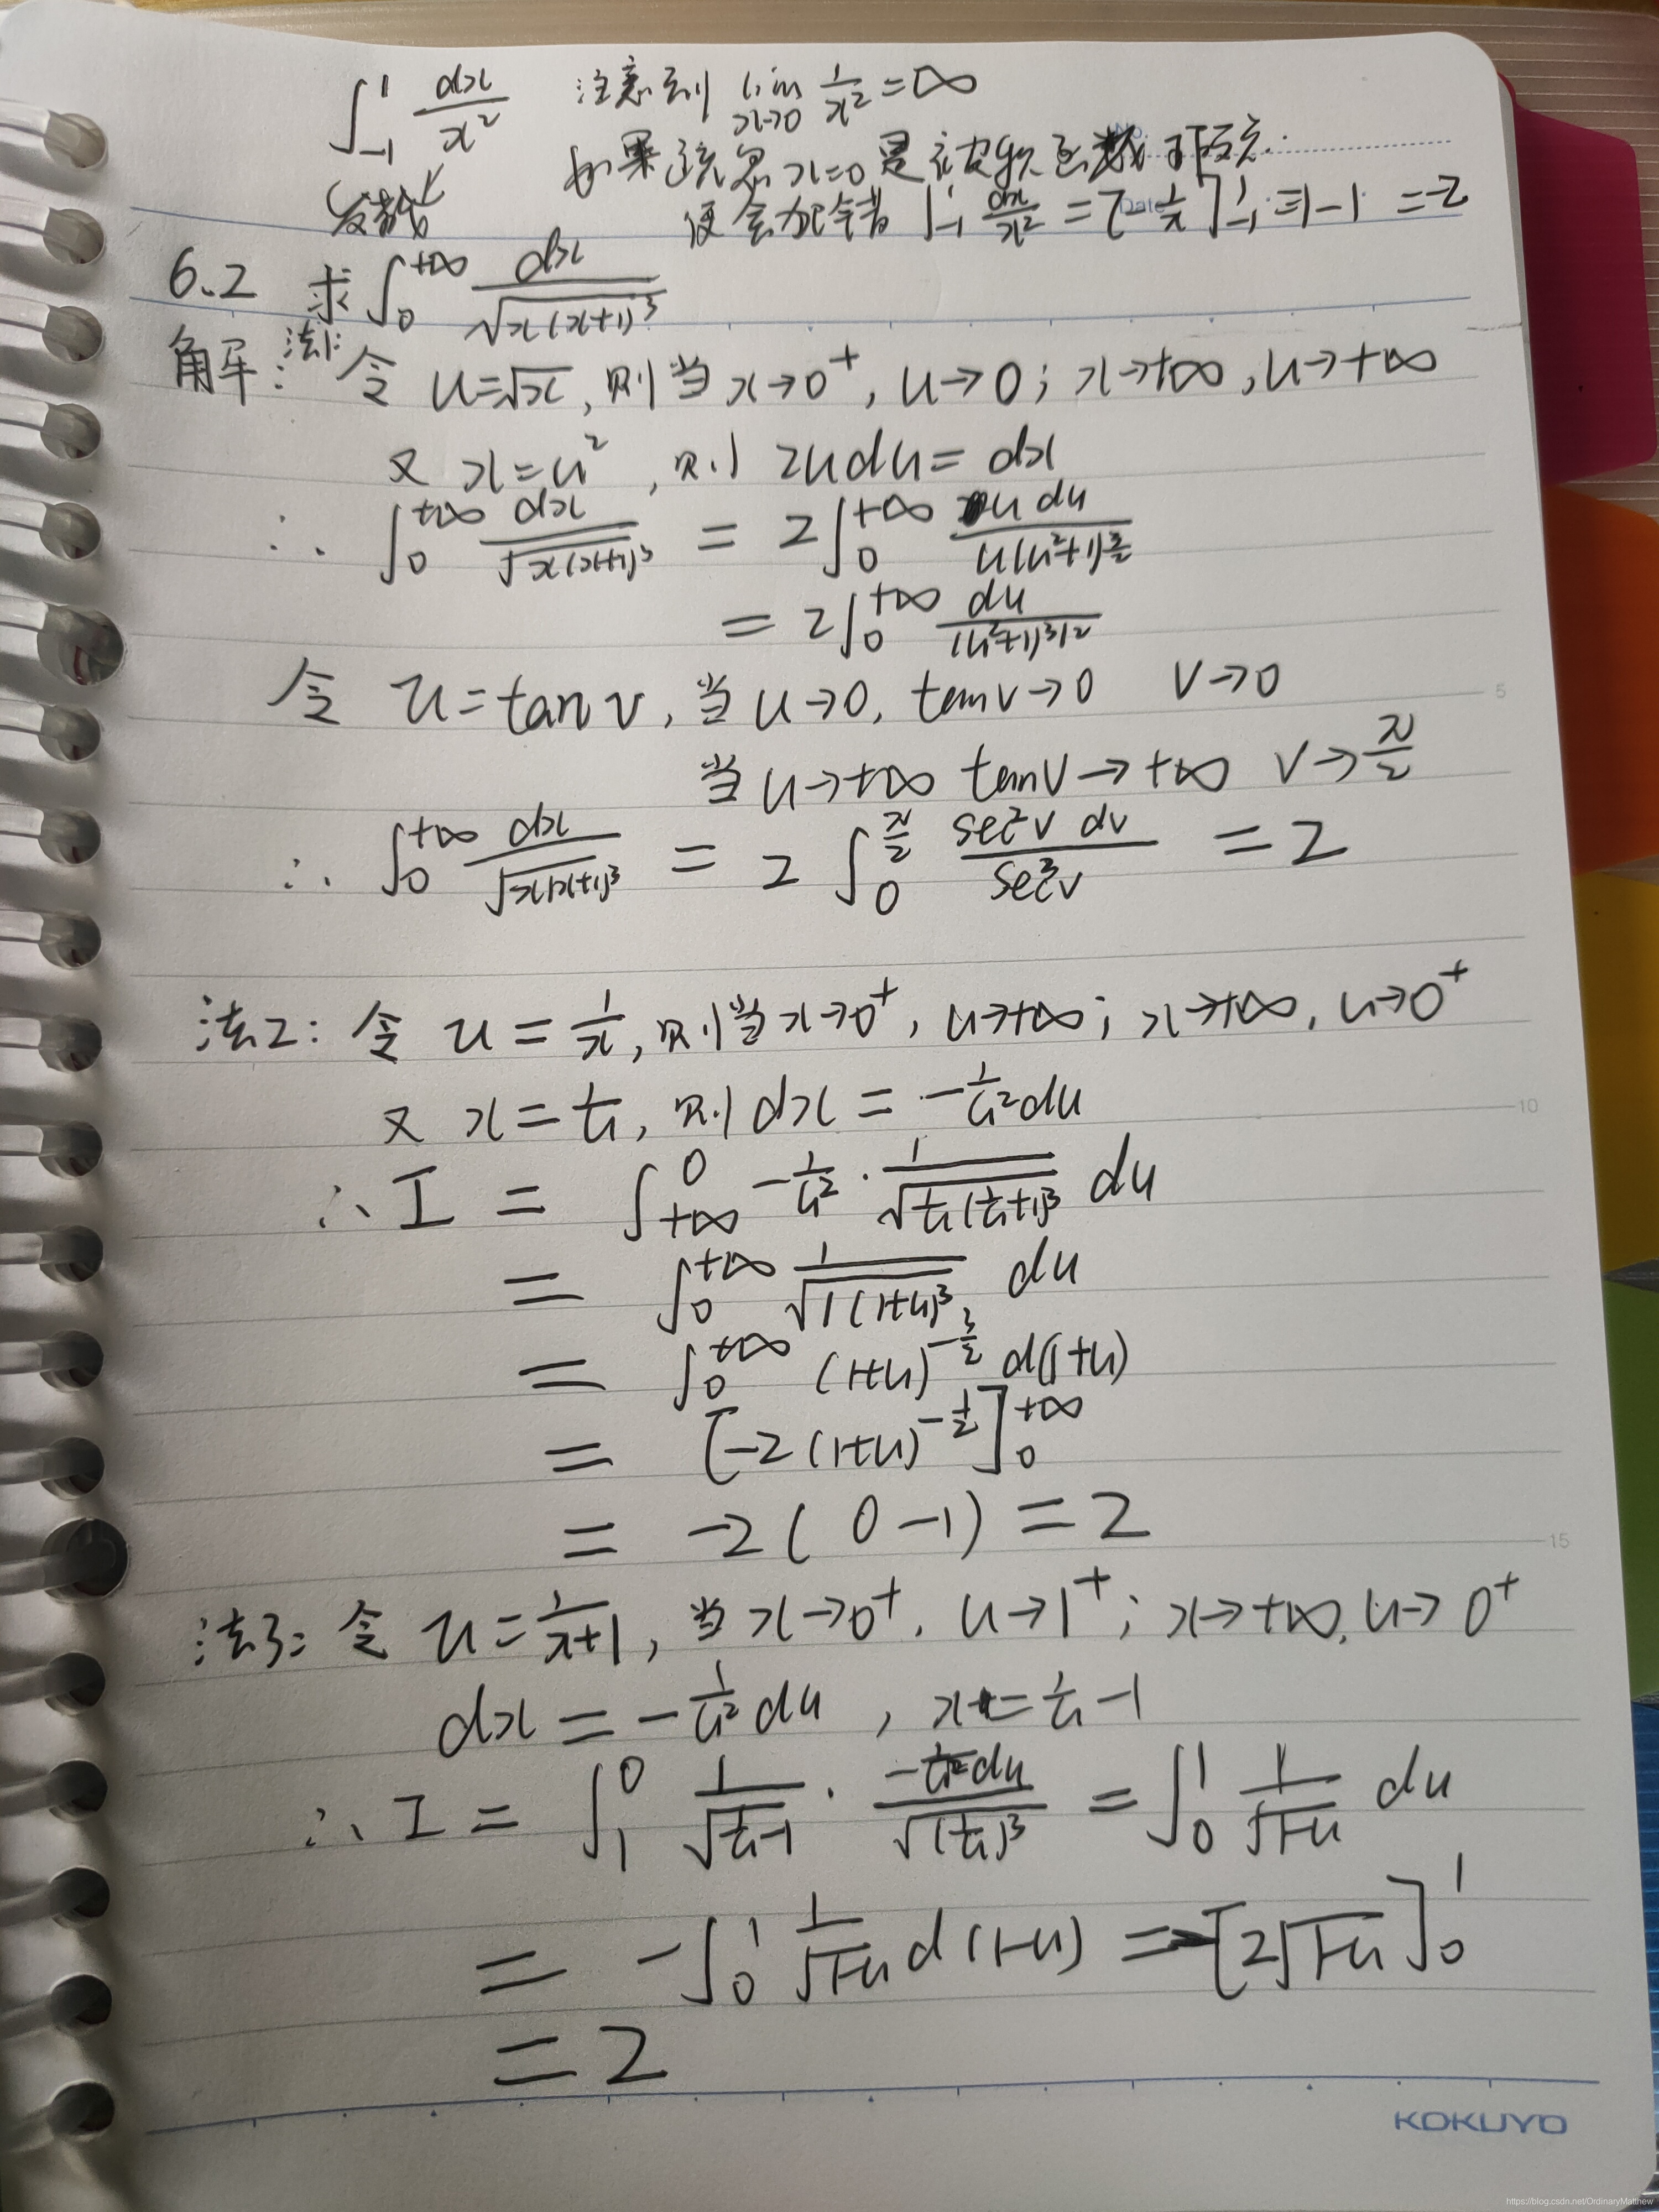 ∫_{-1}^{1} dx/x² 注意到 lim_{x→0} 1/x² = ∞
发散 如果疏忽 x=0 是被积函数
便会犯错 ∫_{-1}^{1} dx/x² = [-1/x]_{-1}^{1} = -1-1 = -2
No.
Date
6.2 求 ∫_0^{+∞} dx/√(x(x+1)³)
解: 法1: 令 u=√x, 则当 x→0⁺, u→0; x→+∞, u→+∞
又 x=u², 则 2udu=dx
∴ ∫_0^{+∞} dx/√(x(x+1)³) = 2∫_0^{+∞} u du/(u(u²+1)^{3/2})
= 2∫_0^{+∞} du/(u²+1)^{3/2}
令 u=tan v, 当 u→0, tan v→0 v→0
5
当 u→+∞ tan v→+∞ v→π/2
∴ ∫_0^{+∞} dx/√(x(x+1)³) = 2∫_0^{π/2} sec²v dv/sec³v = 2
法2: 令 u=1/x, 则当 x→0⁺, u→+∞; x→+∞, u→0⁺
又 x=1/u, 则 dx = -1/u² du
10
∴ I = ∫_{+∞}^0 -1/u² · 1/√(1/u(1/u+1)³) du
= ∫_0^{+∞} 1/√(1(1+u)³) du
= ∫_0^{+∞} (1+u)^{-3/2} d(1+u)
= [-2(1+u)^{-1/2}]_0^{+∞}
= -2(0-1) = 2
15
法3: 令 u=1/(x+1), 当 x→0⁺, u→1⁺; x→+∞, u→0⁺
dx = -1/u² du, x = 1/u-1
∴ I = ∫_1^0 1/√(1/u-1) · (-1/u² du)/√((1/u)³) = ∫_0^1 1/√(1-u) du
= -∫_0^1 1/√(1-u) d(1-u) = -[2√(1-u)]_0^1
= 2
KOKUYO
https://blog.csdn.net/OrdinaryMatthew